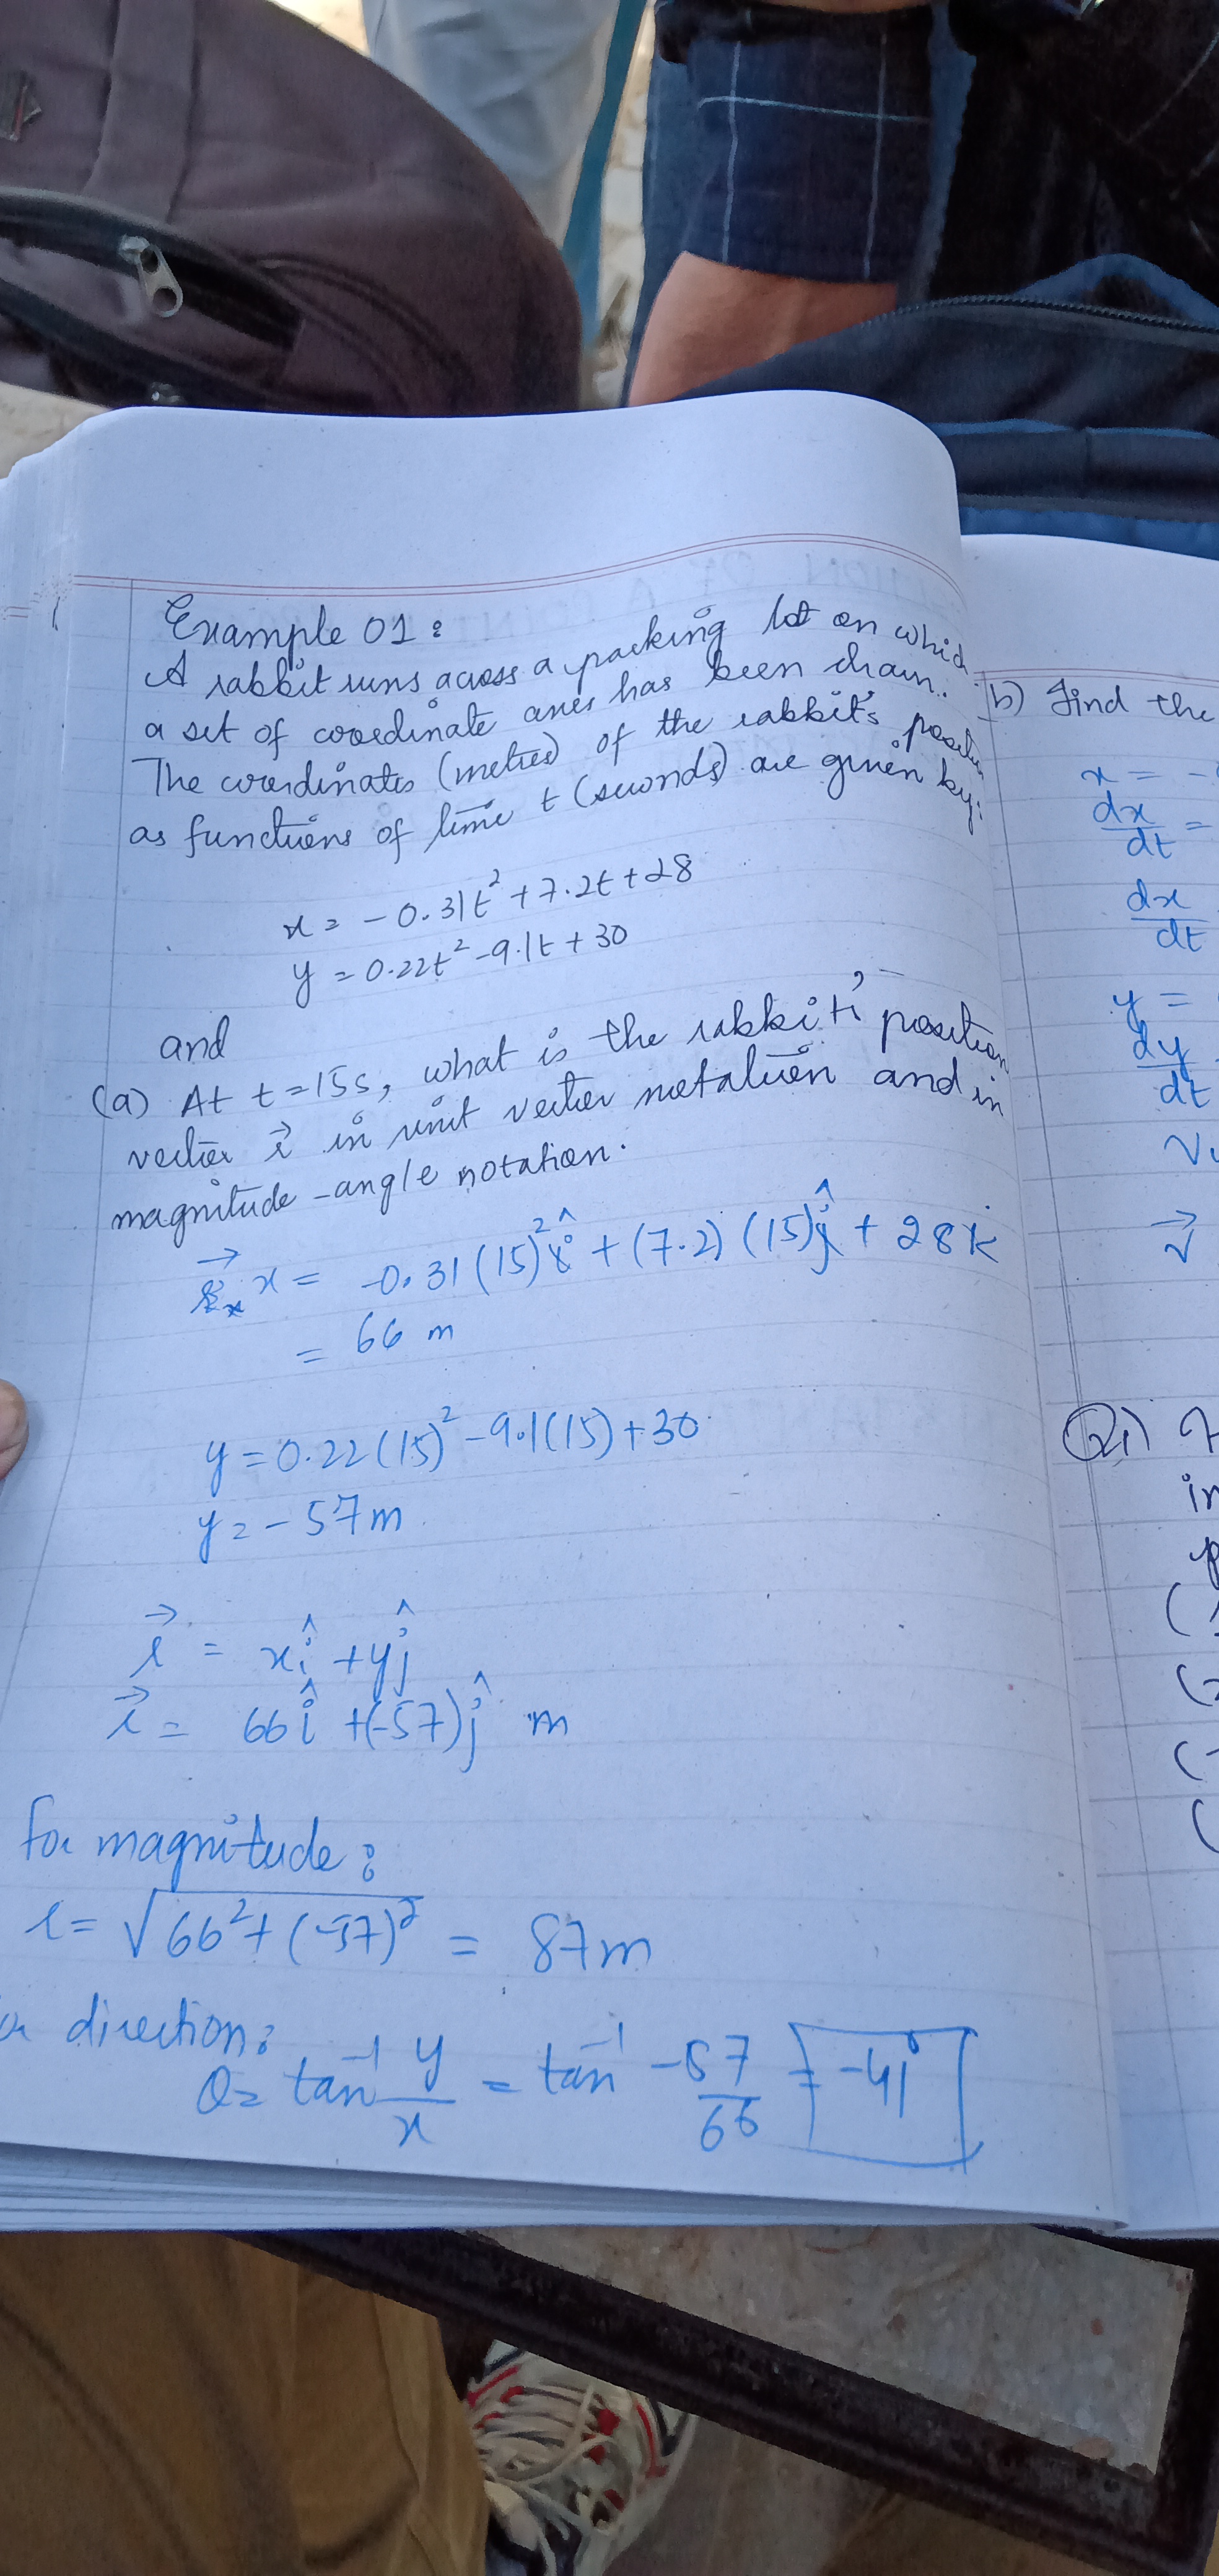 Example 01:
A rabbit runs across a parking lot on which
a set of coordinate axes has been drawn.
The coordinates (metres) of the rabbit's position
as functions of time t (seconds) are given by:
x = -0.31t² + 7.2t + 28
y = 0.22t² - 9.1t + 30
and
(a) At t = 15s, what is the rabbit's position
vector r⃗ in unit vector notation and in
magnitude-angle notation.
x = -0.31(15)²î + (7.2)(15)ĵ + 28k
= 66 m
y = 0.22(15)² - 9.1(15) + 30
y = -57m
r⃗ = xî + yĵ
r⃗ = 66î + (-57)ĵ m
For magnitude:
r = √66² + (-57)² = 87m
direction:
θ = tan⁻¹ y/x = tan⁻¹ -57/66 = -41°
b) Find the
x = -
dx/dt =
dx/dt
y =
dy/dt
V⃗
Q1)
in